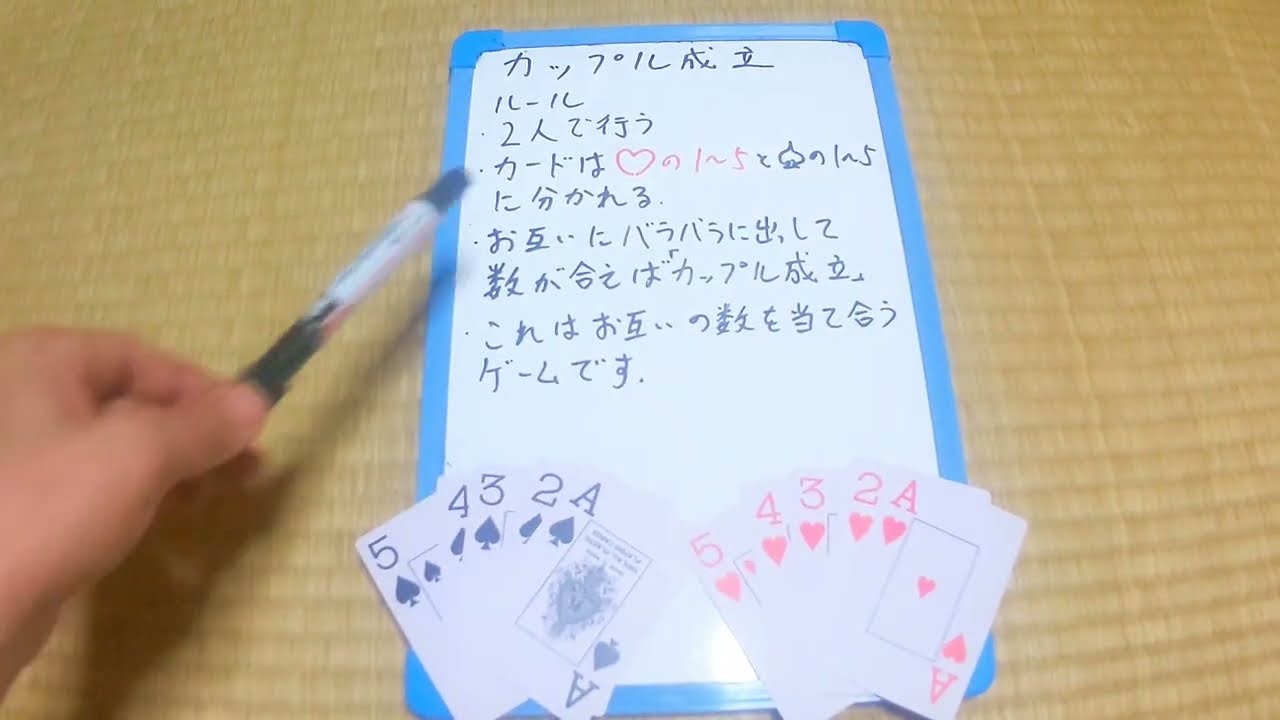 カップル成立
ルール
・2人で行う
・カードは♡の1~5と♤の1~5
に分かれる.
・お互いにバラバラに出して
数が合えば「カップル成立」
・これはお互いの数を当て合う
ゲームです.
5 4 3 2 A
A
5 4 3 2 A
A